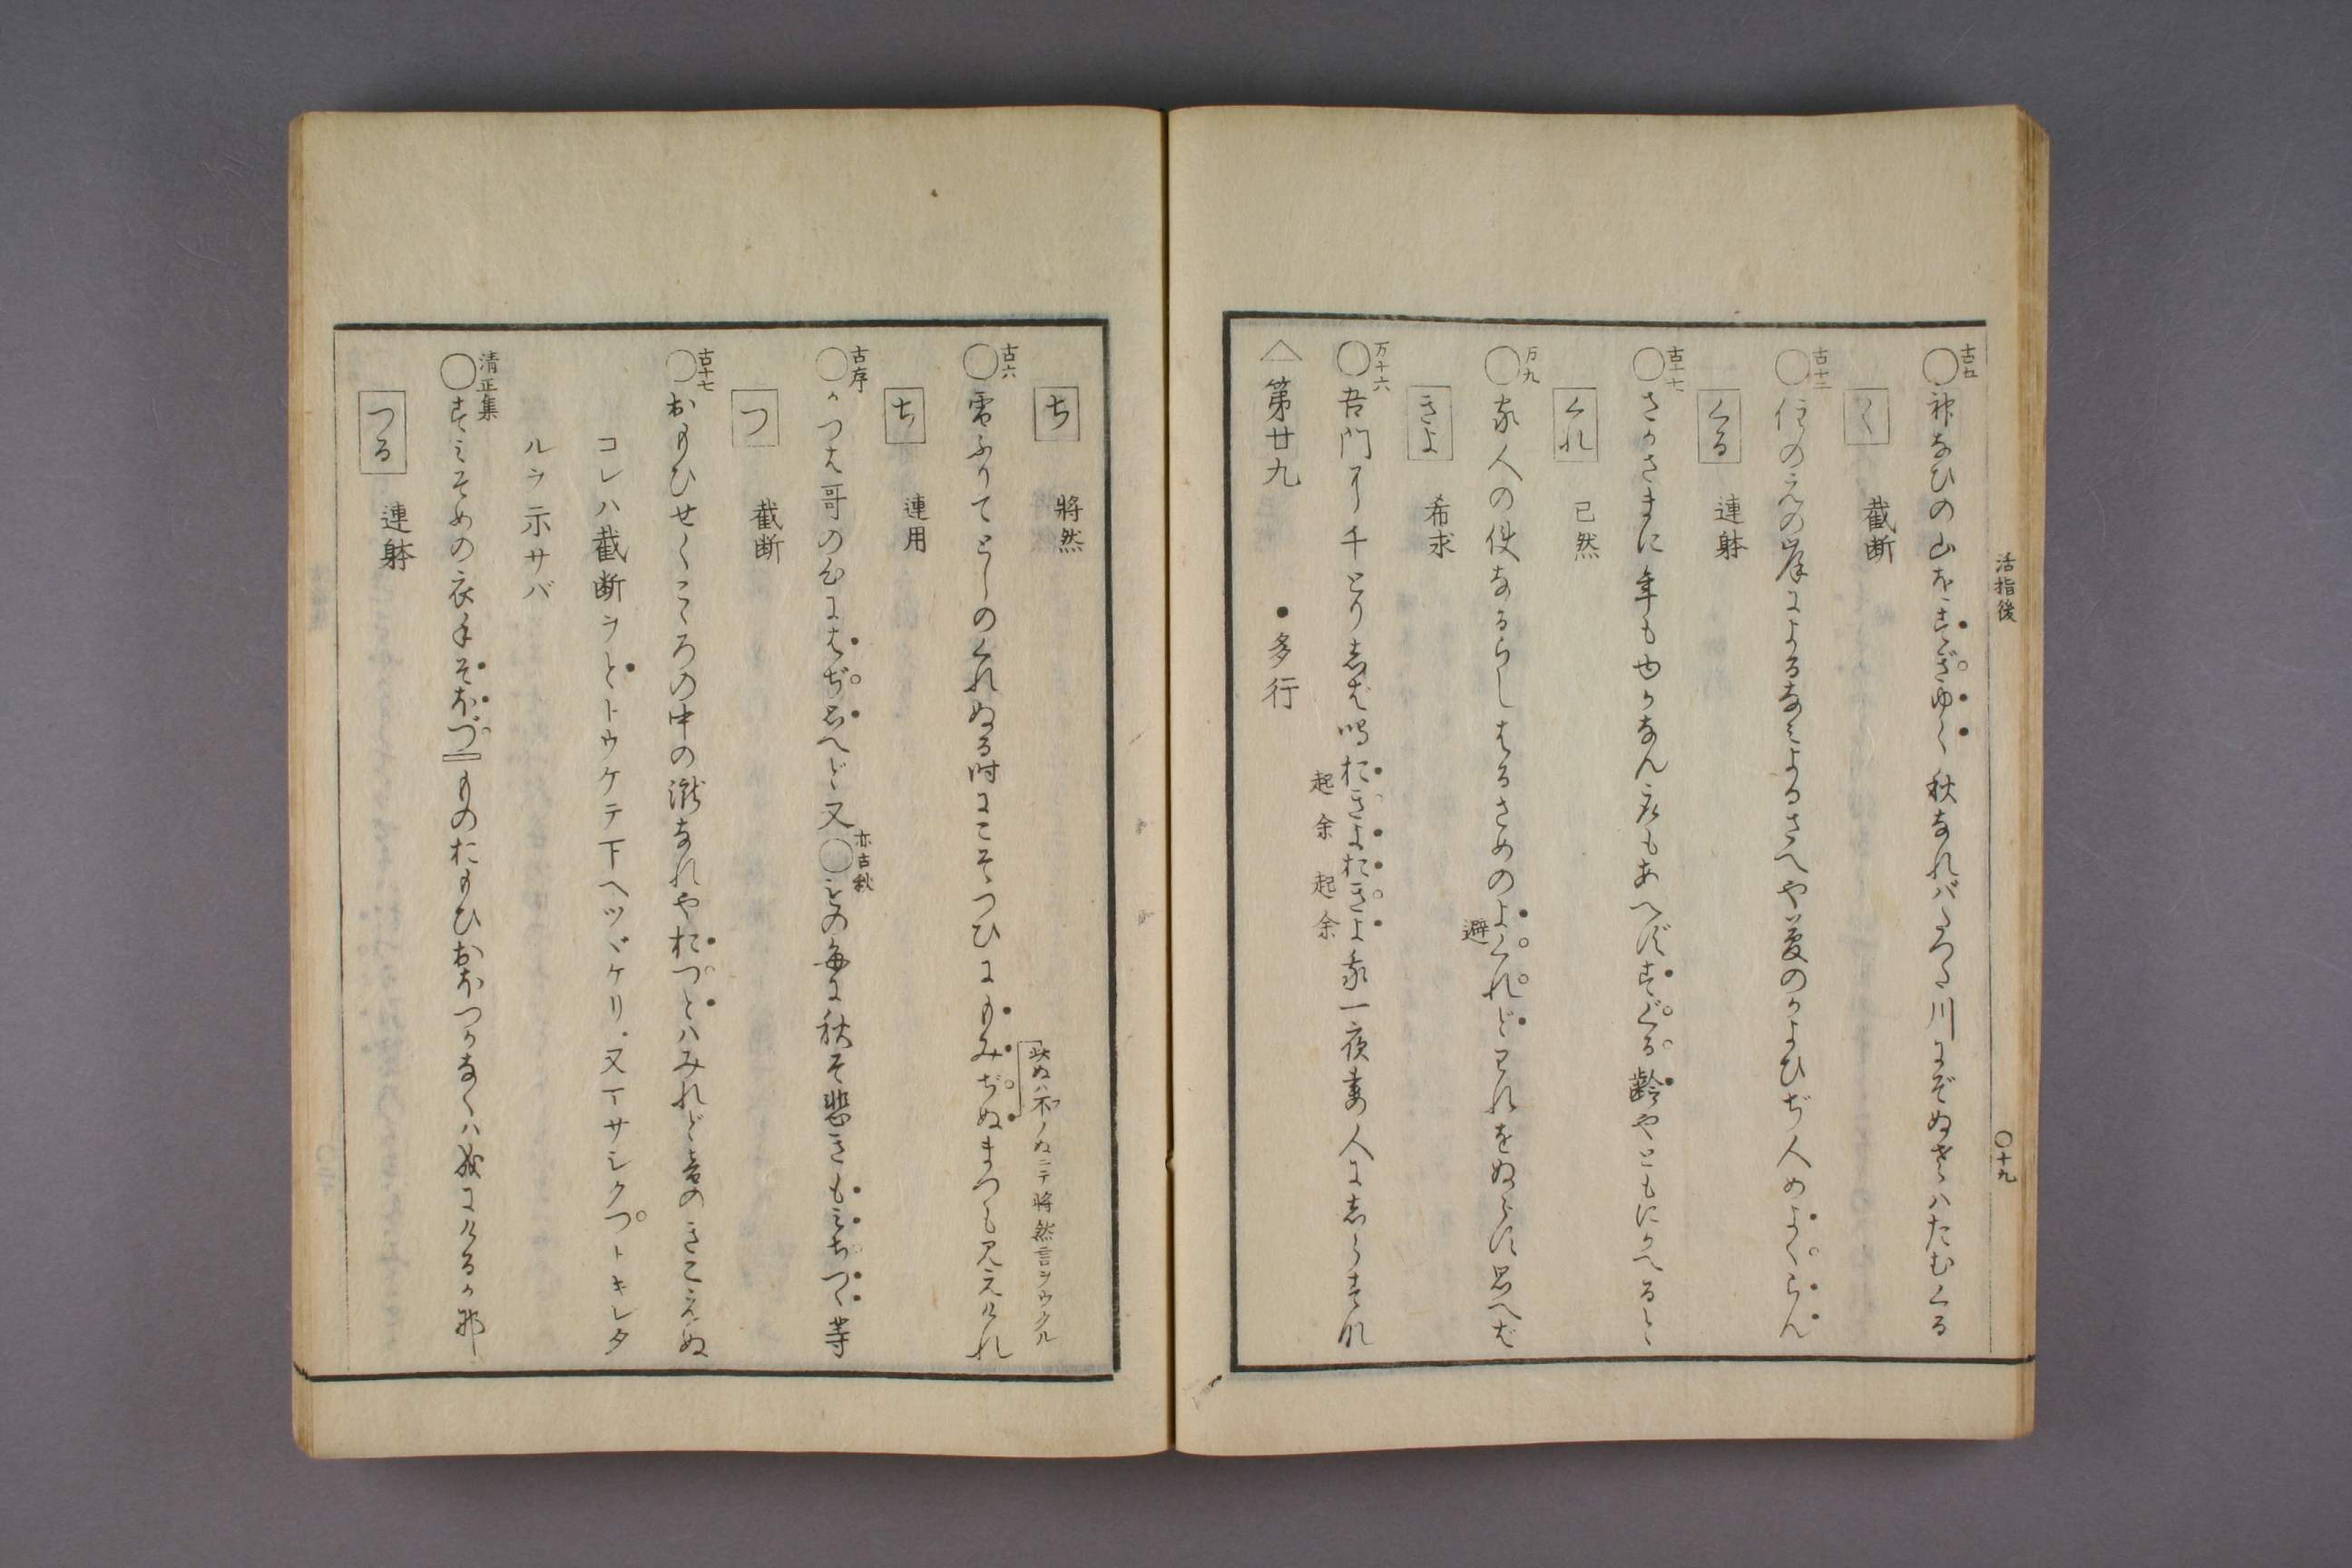 活指後
〇十九
古五
〇神なびの山をすぎゆく秋なればたつた川にぞぬさハたむくる
く　截断
古十二
〇住のえの岸による なみよるさへや夢のかよひぢ人めよくらん
くる　連躰
古十七
〇さかさまに年もゆかなん取もあへずすぐる齢やともにかへると
くれ　已然
万九
〇家人の使なるらしはるさめのよくれどわれをぬらす思へば
避
きよ　希求
万十六
〇吾門に千とりしば鳴おきよおきよ我一夜妻人にしらすな
起余　起余
△第廿九　●多行
ち　將然
此ぬハ不ノぬニテ將然言ヲウクル
古六
〇雪ふりてとしのくれぬる時にこそつひにもみぢぬまつも見えけれ
ち　連用
古序
〇かつは哥の心にはぢおもへど又
亦古秋
〇ものごとに秋ぞ悲きもみちつゝ等
つ　截断
古十七
〇おもひせくこゝろの中の瀧なれやおつとハみれど音のきこえぬ
コレハ截断ヲとトウケテ下ヘツヾケリ又一サシクつトキレタ
ルヲ示サバ
清正集
〇すみぞめの衣手そほづ
つる　連躰